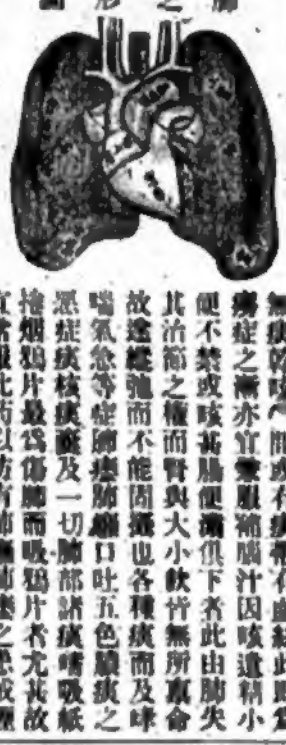 肺之形圖
無痰乾咳間或有痰帶有血絲此即為
癆症之漸亦宜常服補腦汁因咳遺精小
便不禁或咳甚腸便瀉俱下者此由肺失
其治節之權而腎與大小飲皆無所稟命
故遂縱弛而不能固攝也各種痰而及哮
喘氣急等症肺癰肺癟口吐五色膿痰之
惡症痰核痰飲及一切肺部諸痰嗜吸紙
捲烟鴉片最爲傷肺而吸鴉片者尤甚故
宜常服此药以防有肺癰肺痿之患